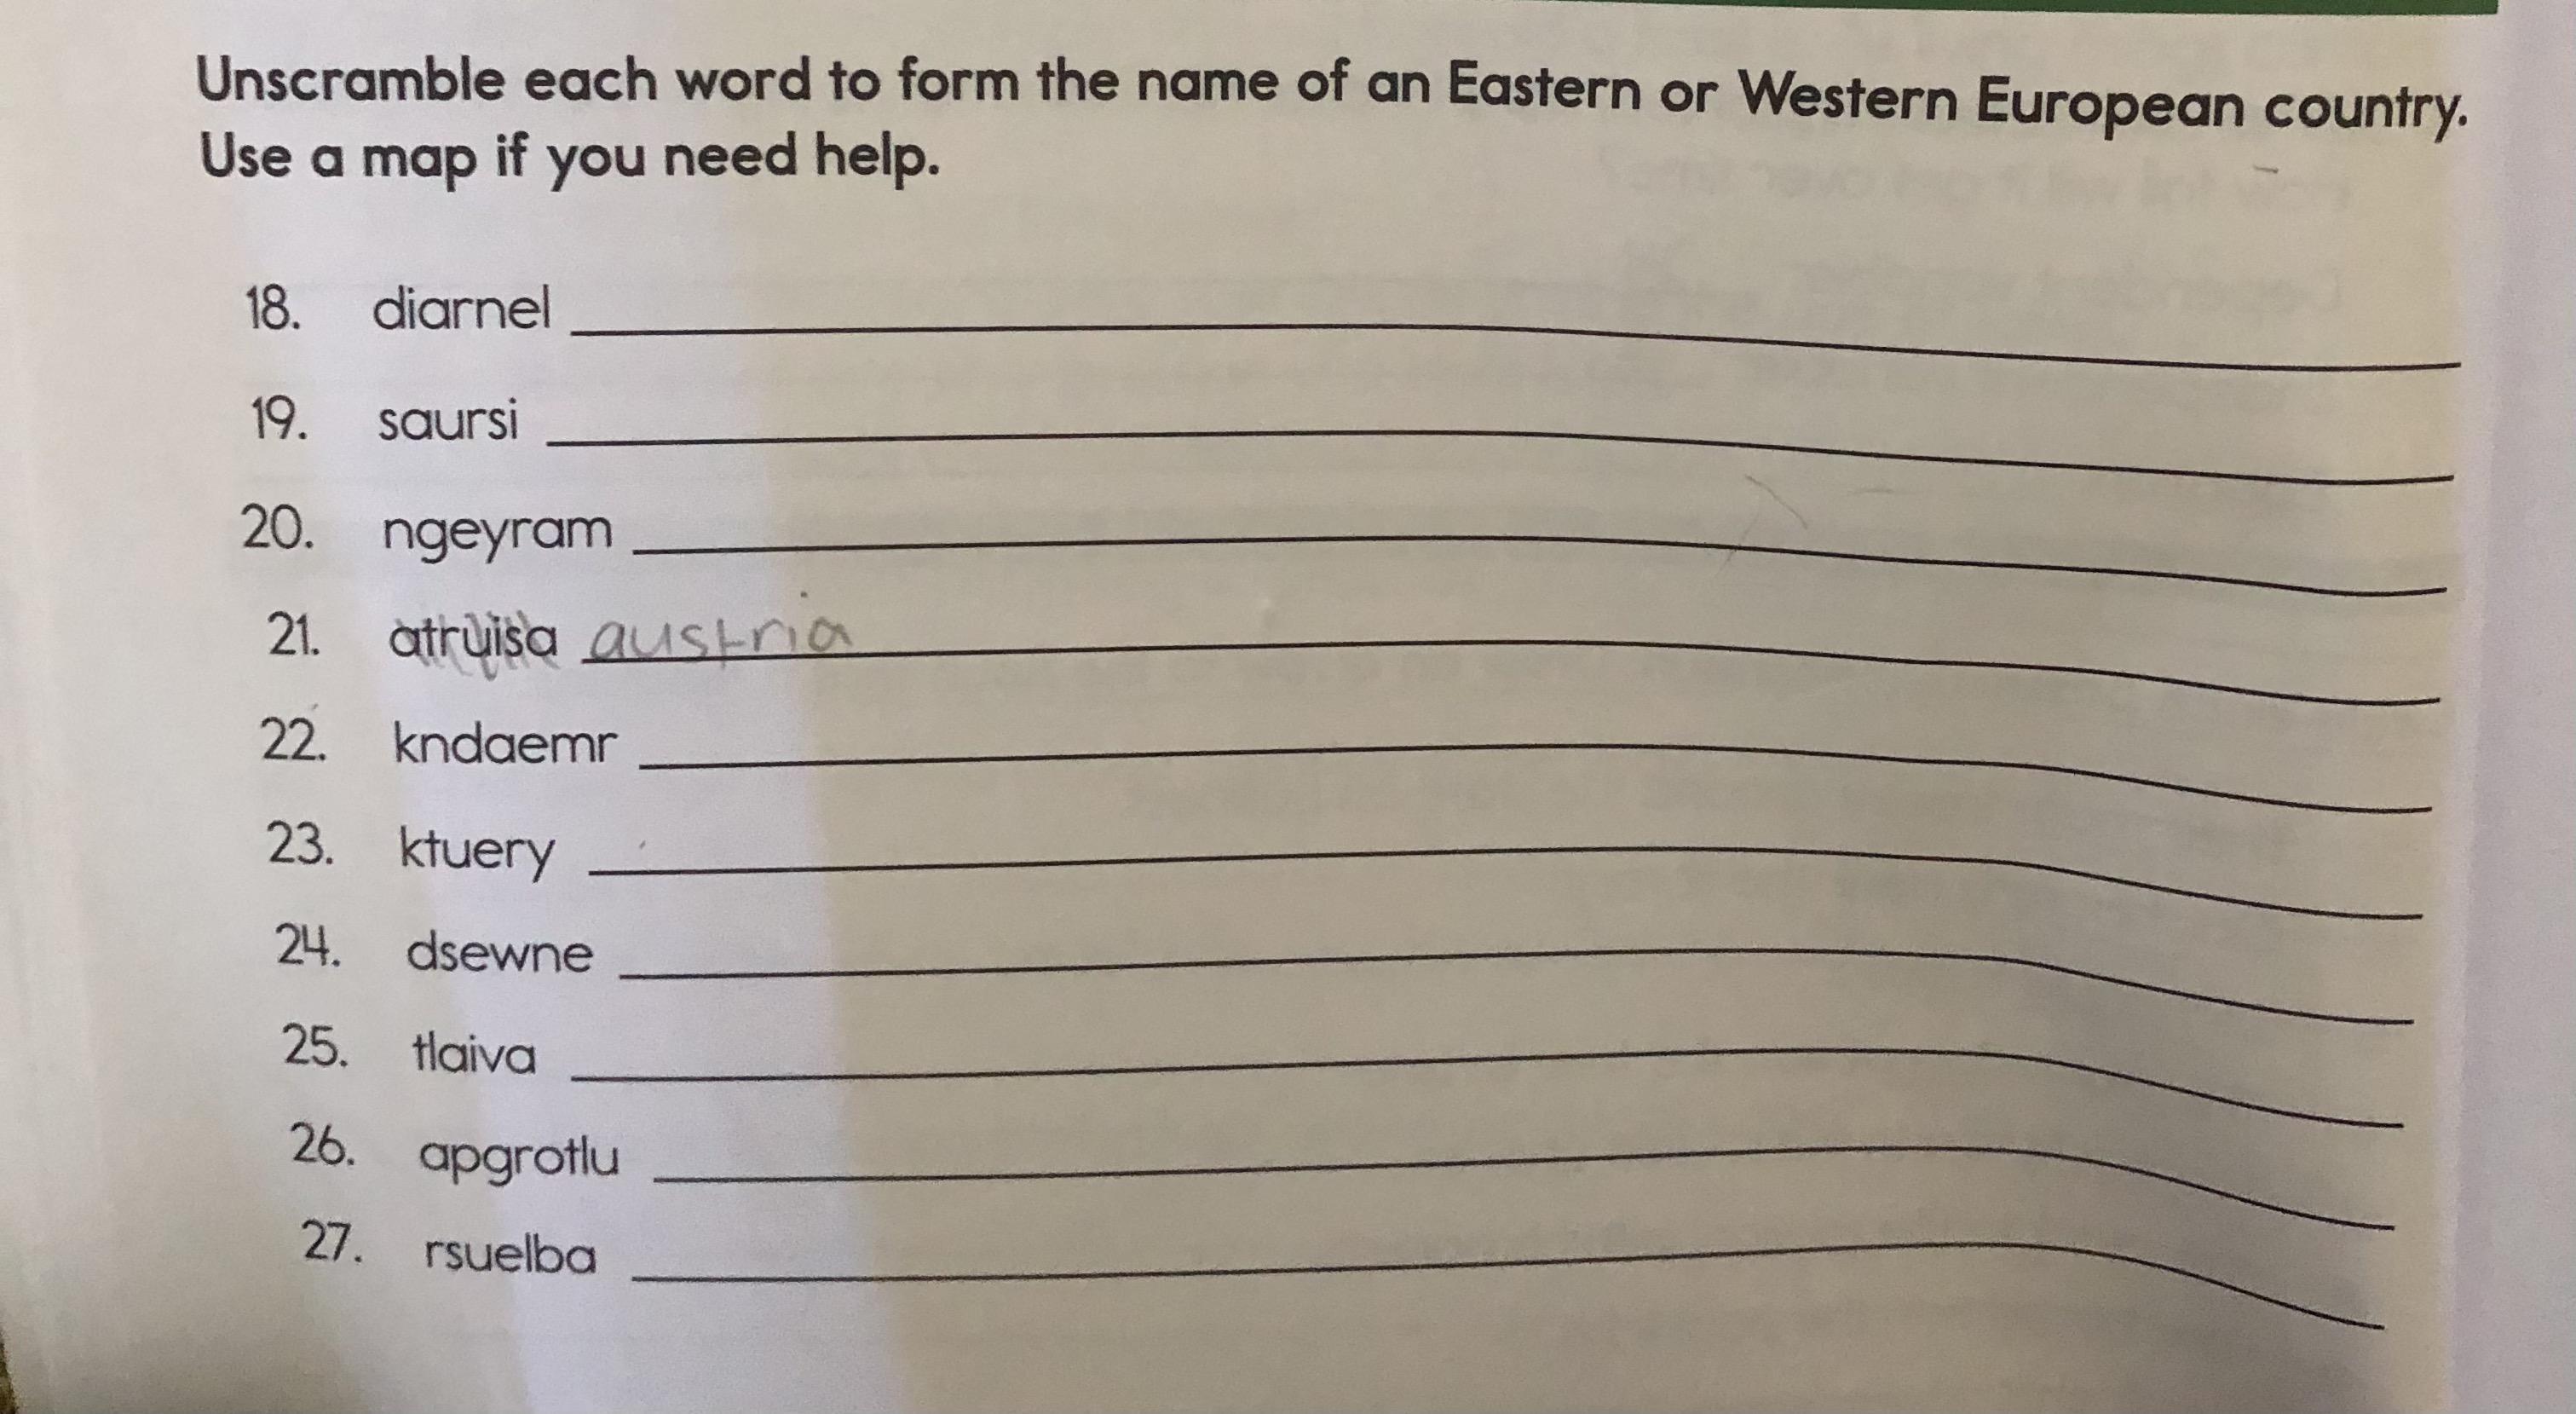 Unscramble each word to form the name of an Eastern or Western European country.
Use a map if you need help.
18. diarnel
19. saursi
20. ngeyram
21. atruisa austria
22. kndaemr
23. ktuery
24. dsewne
25. tlaiva
26. apgrotlu
27. rsuelba